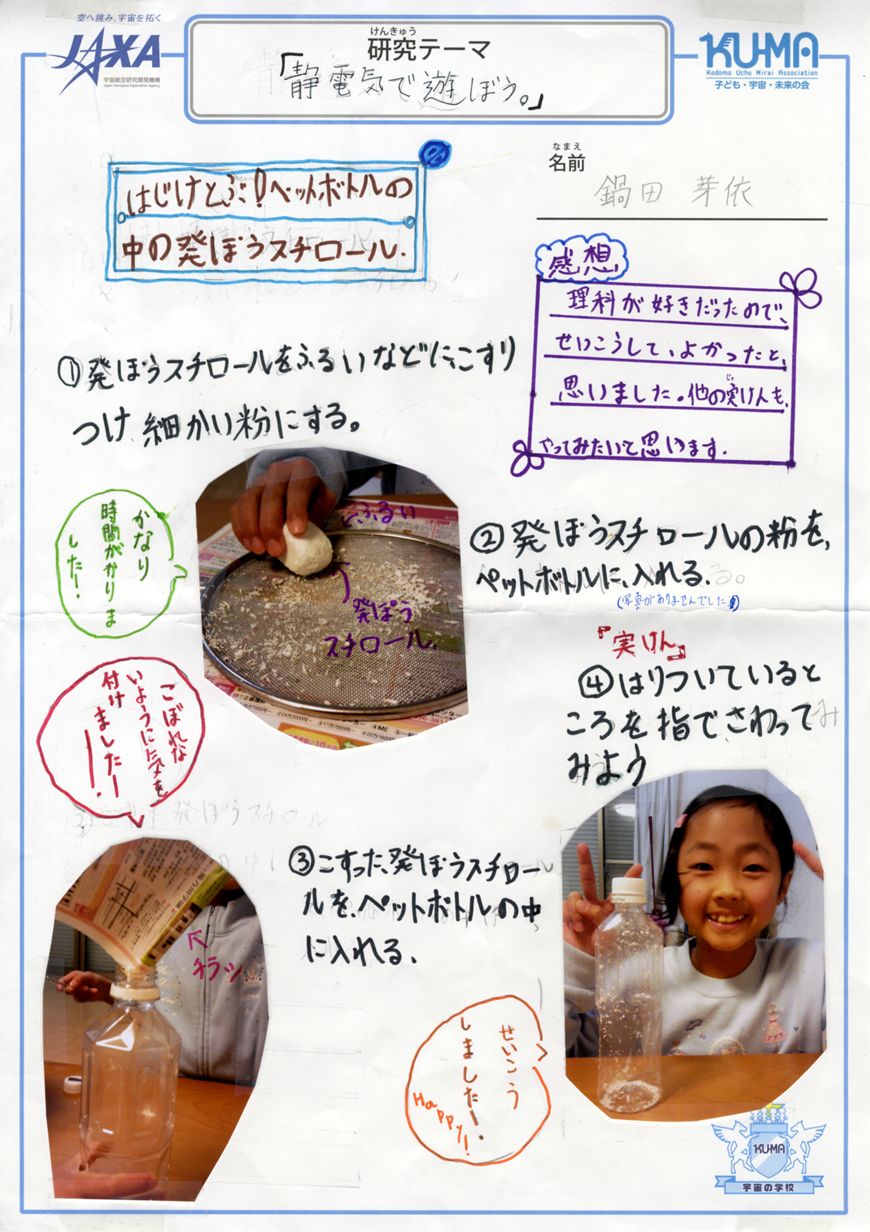 空へ挑み、宇宙を拓く
JAXA
宇宙航空研究開発機構
Japan Aerospace Exploration Agency
けんきゅう
研究テーマ
「静電気で遊ぼう。」
KU-MA
Kodomo Uchu Mirai Association
子ども・宇宙・未来の会
なまえ
名前
鍋田 芽依
はじけとぶ!ペットボトルの
中の発ぼうスチロール.
感想
理科が好きだったので、
せいこうして、よかったと、
思いました。他の実けんも、
じっ
やってみたいと思います.
①発ぼうスチロールをふるいなどに、こすり
つけ細かい粉にする。
かなり
時間がかりま
した!
ふるい
発ぼう
スチロール.
②発ぼうスチロールの粉を、
ペットボトルに、入れる.
(写真がありませんでした)
こぼれな
いように気を
付けました!
『実けん』
④はりついていると
ころを指でさわって
みよう
③こすった、発ぼうスチロー
ルを、ペットボトルの中
に入れる.
チラシ
せいこう
しました!
Happy!
KU-MA
宇宙の学校